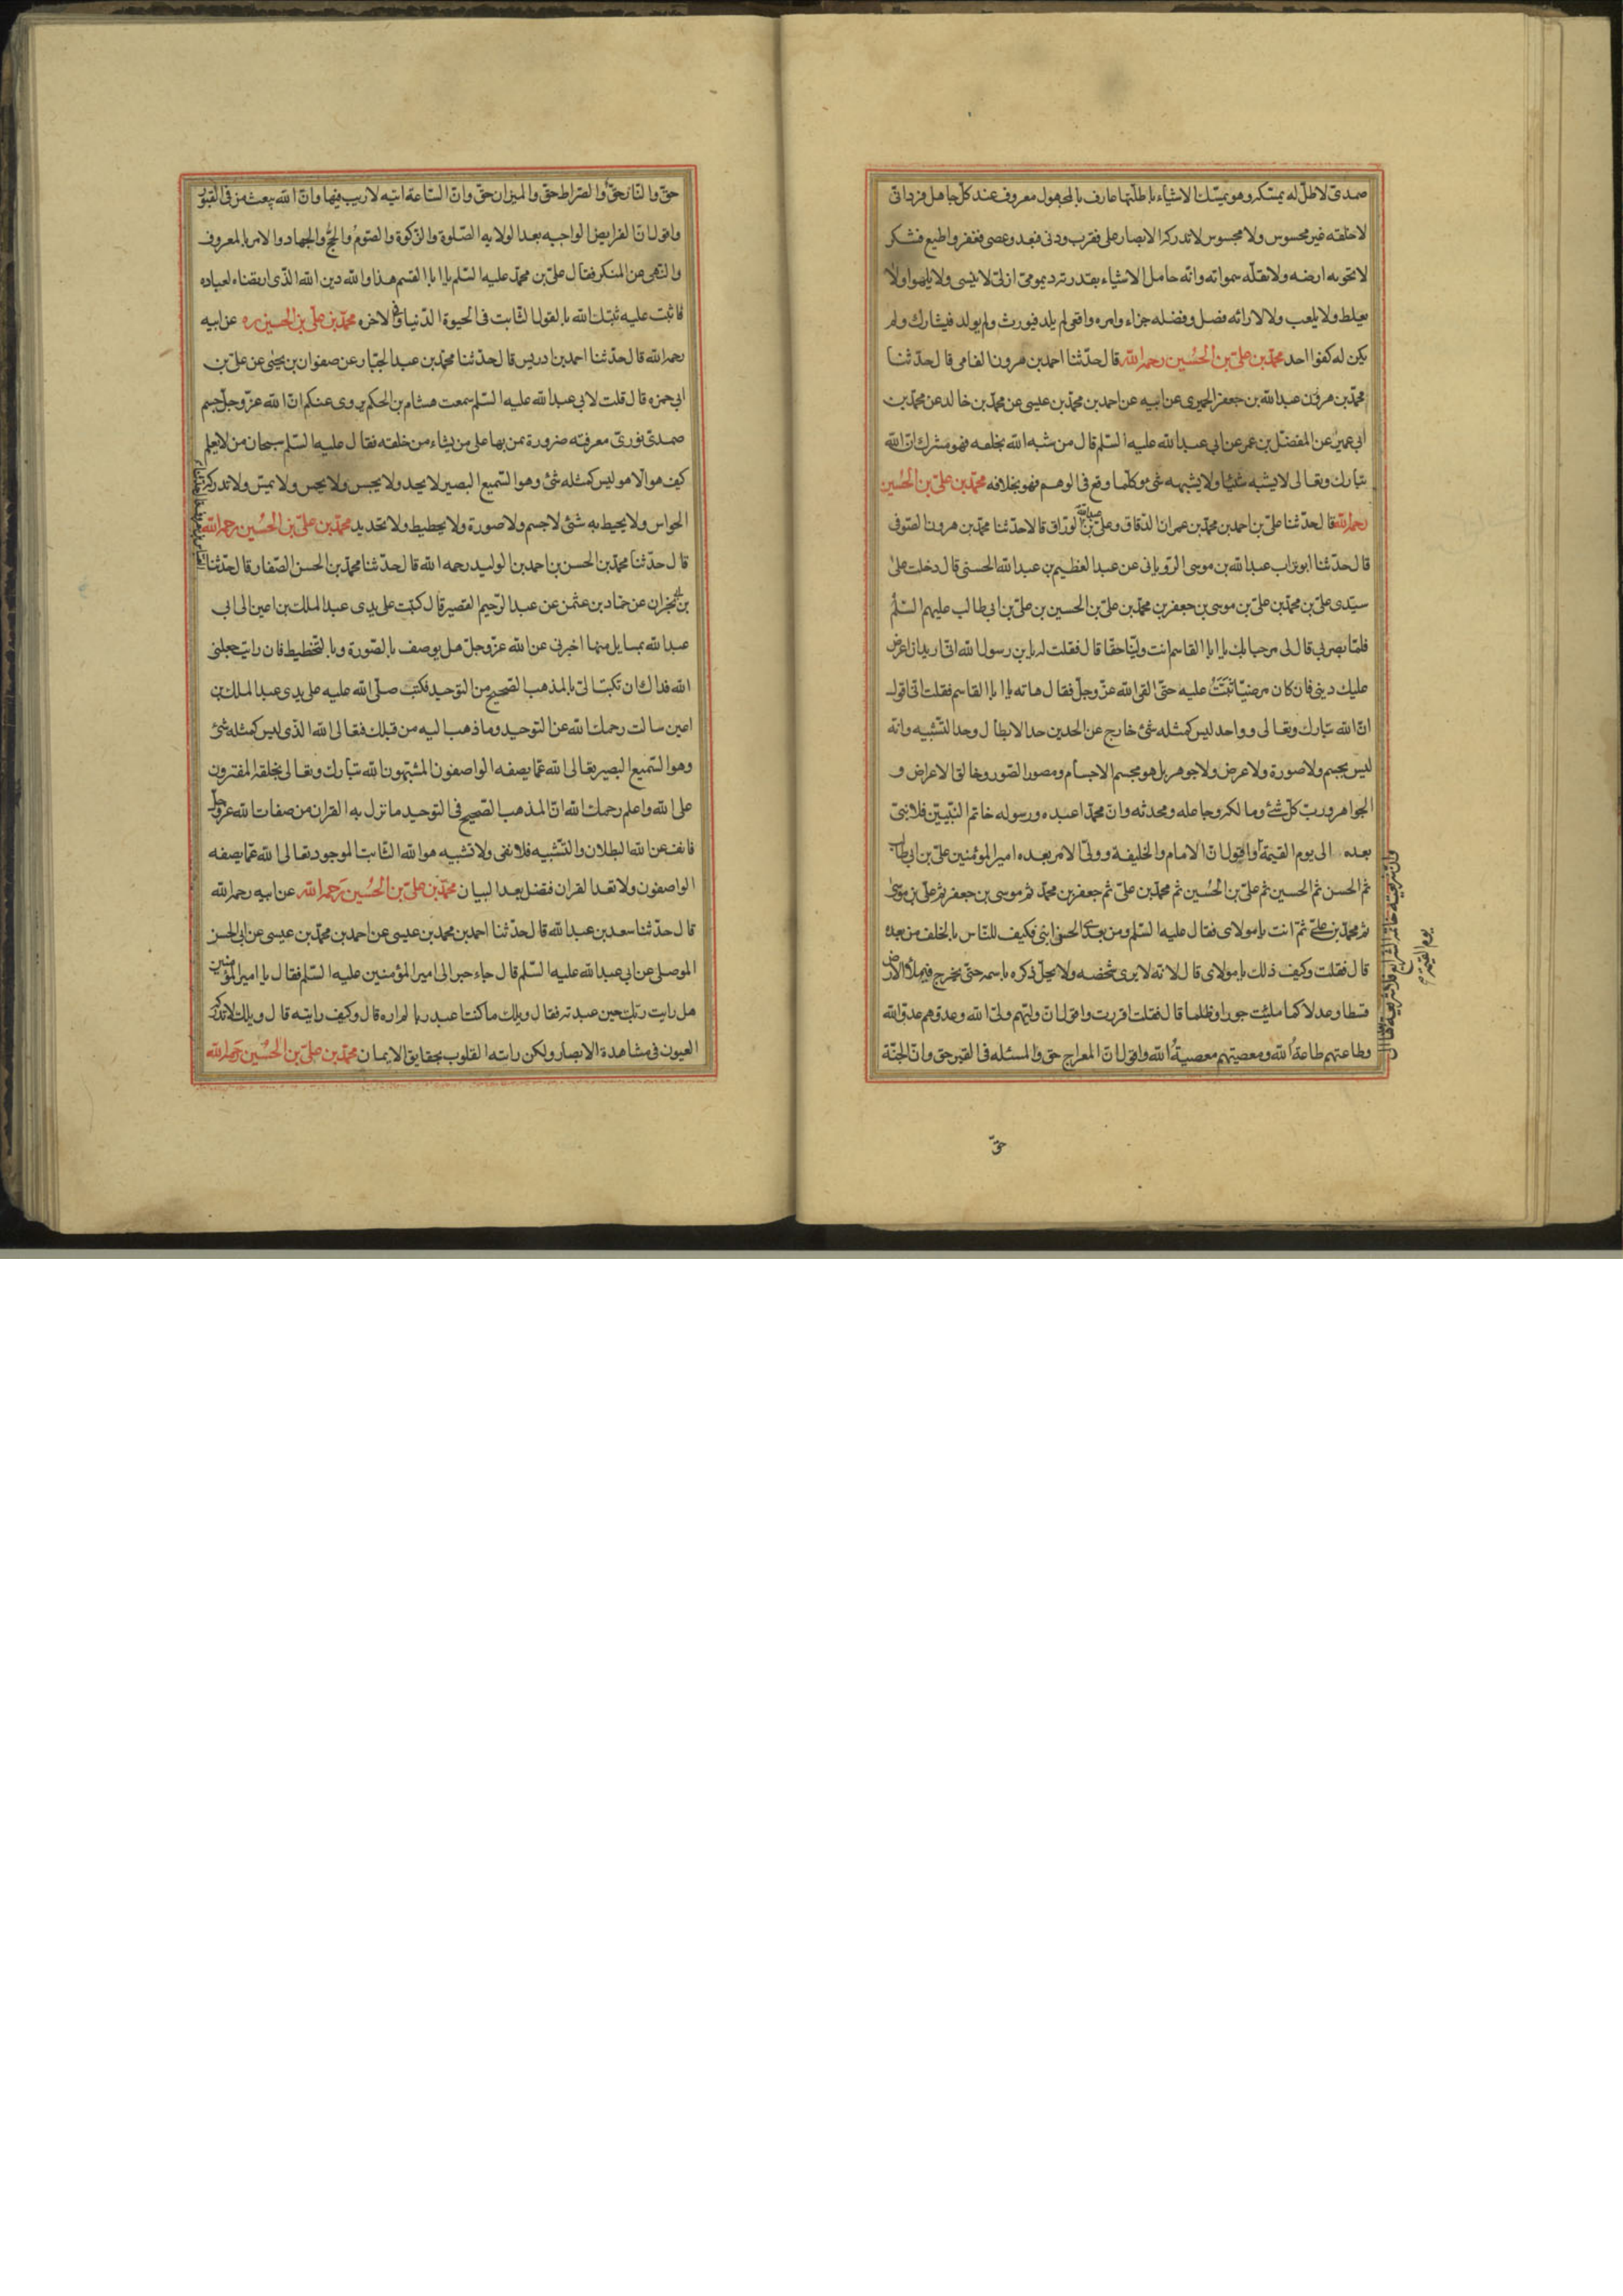 صمدی لا ظل له یمسکه و هو یمسک الاشیاء باظلتها عارف بالمجهول معروف عند کل جاهل فردانی
لا خلقه غیر محسوس ولا مجسوس لا تدرکه الابصار علی فقرب و دنی فبعد و عصی فغفر و اطیع فشکر
لا تحویه ارضه ولا تقله سمواته و انه حامل الاشیاء بقدرته دیمومی ازلی لا ینسی ولا یلهوا ولا
یغلط ولا یلعب ولا لارادته فصل و فصله جزاء و امره واقع لم یلد فیورث و لم یولد فیشارک و لم
یکن له کفوا احد محمد بن علی بن الحسین رحمه الله قال حدثنا احمد بن هرون الفامی قال حدثنا
محمد بن هرون عبدالله بن جعفر الحمیری عن ابیه عن احمد بن محمد بن عیسی عن محمد بن خالد عن محمد بن
ابی عمیر عن المفضل بن عمر عن ابی عبدالله علیه السلم قال من شبه الله بخلقه فهو مشرک ان الله
تبارک و تعالی لا یشبه شیئا ولا یشبهه شئ و کلما وقع فی الوهم فهو بخلافه محمد بن علی بن الحسین
رحمه الله قال حدثنا علی بن احمد بن محمد بن عمران الدقاق و علی بن عبدالله الوراق قالا حدثنا محمد بن هرون الصوفی
قال حدثنا ابو تراب عبدالله بن موسی الرویانی عن عبدالعظیم بن عبدالله الحسنی قال دخلت علی
سیدی علی بن محمد بن علی بن موسی بن جعفر بن محمد بن علی بن الحسین بن علی بن ابی طالب علیهم السلم
فلما بصر بی قال لی مرحبا بک یا ابا القاسم انت ولینا حقا قال فقلت له یابن رسول الله انی ارید ان اعرض
علیک دینی فان کان مرضیا ثبتت علیه حتی القی الله عز وجل فقال هاته یا ابا القاسم فقلت انی اقول
ان الله تبارک و تعالی و واحد لیس کمثله شئ خارج عن الحدین حد الابطال و حد التشبیه و انه
لیس بجسم ولا صورة ولا عرض ولا جوهر بل هو مجسم الاجسام و مصور الصور و خالق الاعراض و
الجواهر و رب کل شئ و مالکه و جاعله و محدثه و ان محمدا عبده و رسوله خاتم النبیین فلا نبی
بعده الی یوم القیمة و اقول ان الامام والخلیفة و ولی الامر بعده امیر المؤمنین علی بن ابی طالب
ثم الحسن ثم الحسین ثم علی بن الحسین ثم محمد بن علی ثم جعفر بن محمد ثم موسی بن جعفر ثم علی بن موسی
ثم محمد بن علی ثم انت یا مولای فقال علیه السلم و من بعدی الحسن ابنی فکیف للناس بالخلف من بعده
قال فقلت و کیف ذلک یا مولای قال لانه لا یری شخصه ولا یحل ذکره باسمه حتی یخرج فیملأ الارض
قسطا و عدلا کما ملئت جورا و ظلما قال فقلت اقررت و اقول ان ولیهم ولی الله و عدوهم عدو الله
و طاعتهم طاعة الله و معصیتهم معصیة الله و اقول ان المعراج حق و المسئله فی القبر حق و ان الجنة
حق
و ان شریعته خاتمة الشرایع فلا شریعة بعدها الی
یوم القیمة
حق و النار حق و الصراط حق و المیزان حق و ان الساعة اتیه لا ریب فیها و ان الله یبعث من فی القبور
و اقول ان الفرایض الواجبه بعد الولایه الصلوة و الزکوة و الصوم و الحج و الجهاد و الامر بالمعروف
و النهی عن المنکر فقال علی بن محمد علیه السلم یا ابا القسم هذا والله دین الله الذی ارتضاه لعباده
فاثبت علیه ثبتک الله بالقول الثابت فی الحیوة الدنیا و فی الاخره محمد بن علی بن الحسین ره عن ابیه
رحمه الله قال حدثنا احمد بن ادریس قال حدثنا محمد بن عبدالجبار عن صفوان بن یحیی عن علی بن
ابی حمزه قال قلت لابی عبدالله علیه السلم سمعت هشام بن الحکم یروی عنکم ان الله عز وجل جسم
صمدی نوری معرفته ضرورة یمن بها علی من یشاء من خلقه فقال علیه السلم سبحان من لا یعلم
کیف هو الا هو لیس کمثله شئ و هو السمیع البصیر لا یحد ولا یجس ولا یحس ولا یمس ولا تدرکه
الحواس ولا یحیط به شئ لا جسم ولا صورة ولا تخطیط ولا تحدید محمد بن علی بن الحسین رحمه الله
قال حدثنا محمد بن الحسن بن احمد بن الولید رحمه الله قال حدثنا محمد بن الحسن الصفار قال حدثنا
بن نجران عن حماد بن عثمن عن عبدالرحیم القصیر قال کتبت علی یدی عبدالملک بن اعین الی ابی
عبدالله بمسایل منها اخبرنی عن الله عز وجل هل یوصف بالصورة و بالتخطیط فان رایت جعلنی
الله فداک ان تکتب الی بالمذهب الصحیح من التوحید فکتب صلی الله علیه علی یدی عبدالملک بن
اعین سالت رحمک الله عن التوحید و ما ذهب الیه من قبلک فتعالی الله الذی لیس کمثله شئ
و هو السمیع البصیر تعالی الله عما یصفه الواصفون المشبهون الله تبارک و تعالی بخلقه المفترون
علی الله و اعلم رحمک الله ان المذهب الصحیح فی التوحید ما نزل به القران من صفات الله عز وجل
فانف عن الله البطلان و التشبیه فلا نفی ولا تشبیه هو الله الثابت الموجود تعالی الله عما یصفه
الواصفون ولا تعد القران فتضل بعد البیان محمد بن علی بن الحسین رحمه الله عن ابیه رحمه الله
قال حدثنا سعد بن عبدالله قال حدثنا احمد بن محمد بن عیسی عن احمد بن محمد بن عیسی عن ابی الحسن
الموصلی عن ابی عبدالله علیه السلم قال جاء حبر الی امیر المؤمنین علیه السلم فقال یا امیر المؤمنین
هل رایت ربک حین عبدته فقال ویلک ما کنت اعبد ربا لم اره قال و کیف رایته قال ویلک لا تدرکه
العیون فی مشاهدة الابصار ولکن راته القلوب بحقایق الایمان محمد بن علی بن الحسین رحمه الله